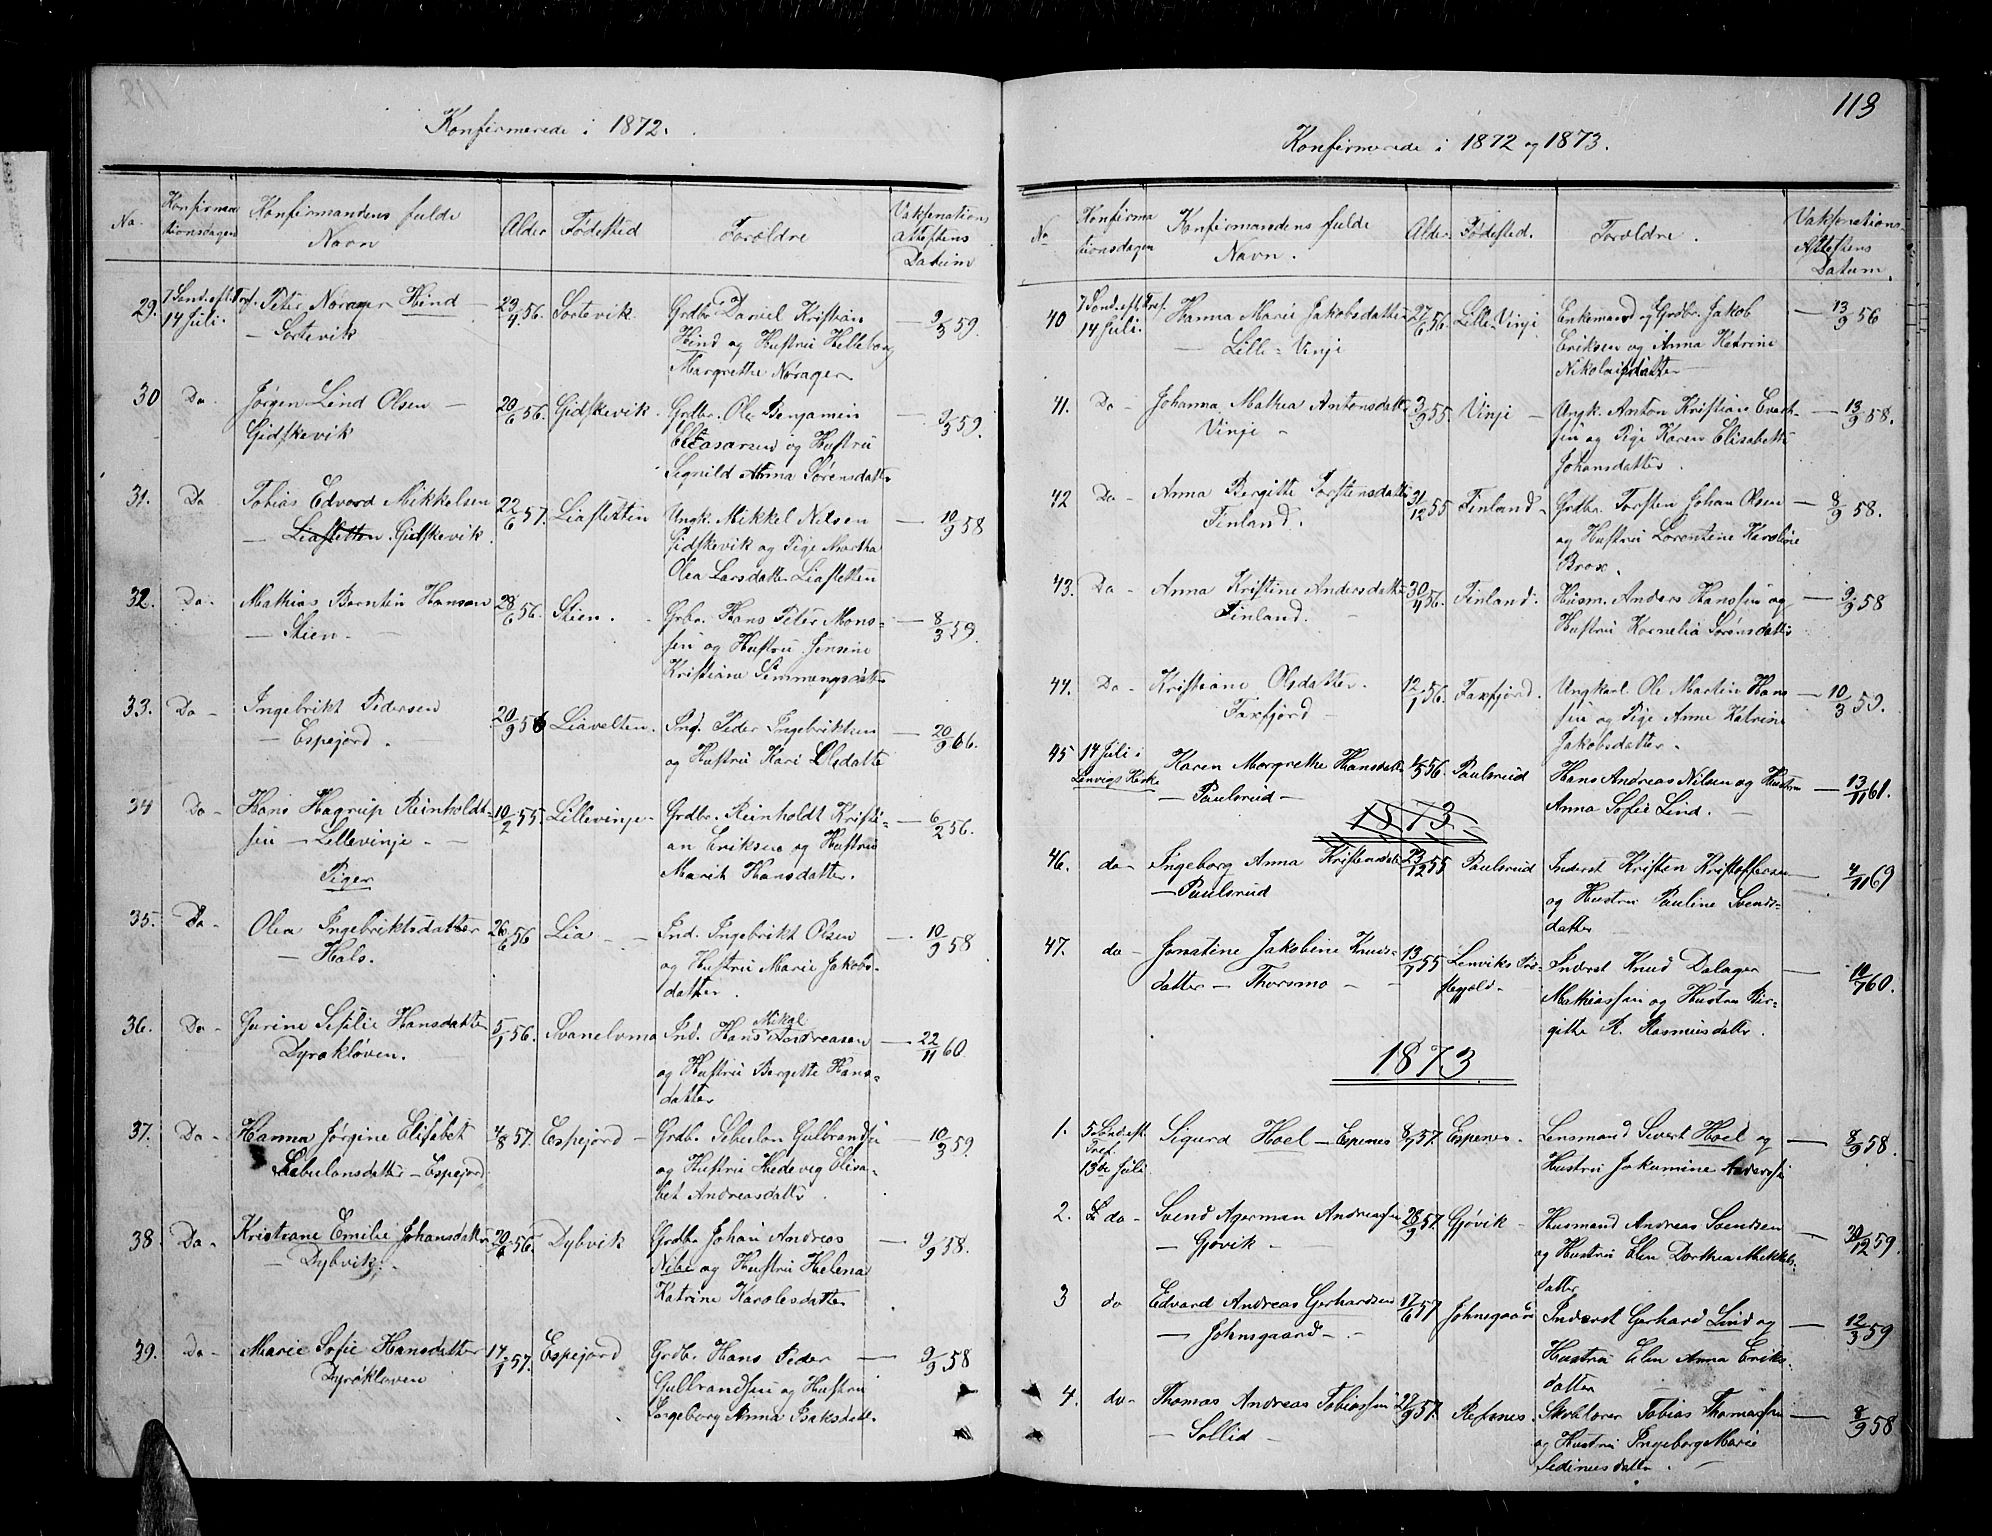 Konfirmerede i 1872.
No. Konfirmationsdagen Konfirmandens fulde Navn Alder Fødested Forældre Vaksinations Attestens Datum
29. 7 Sönd. eft. Tref. Peter Norager Hind 23/4 56. Sortevik. Grdbr. Daniel Kristian 9/3 59.
14 Juli. – Sortevik Hind og Hustru Helleborg
Margrethe Norager
30 Do – Jørgen Lind Olsen – 20/6 56. Gidskevik. Grdbr. Ole Benjamin – 9/3 59.
Gidskevik Eleasarsen og Hustru
Signild Anna Sørensdatter
31. Do Tobias Edvard Mikkelsen 22/6 57. Liasletten Ungk. Mikkel Nilsen – 10/9 58
– Liasletten Gidskevik. Gidskevik og Pige Martha
Olea Larsdatter Liasletten
32. Do. Mathias Berntin Hansen 28/6 56. Stien. Grbr. Hans Peter Mons- – 8/3 59.
– Stien. – sen og Hustru Jensine
Kristiane Simmengsdatter
33. Do – Ingebrikt Pedersen 20/9 56 Liavelten. Ind. Peder Ingebriktsen – 20/9 66.
– Espejord. og Hustru Kari Olsdatter
34 Do – Hans Hagrup Reinholdt- 10/2 55. Lillevinje – Grdbr. Reinholdt Kristi- – 6/2 56.
sen – Lillevinje. – an Eriksen og Hustru
Piger Marit Hansdatter.
35. Do – Olea Ingebriktsdatter 26/6 56 Lia – – Ind. Ingebrikt Olsen – 10/9 58
– Hals. og Hustru Marie Jakobs-
datter.
36. Do – Gurine Sesilie Hansdatter 5/1 56. Svanelvmo Ind. Hans Mikal Andreasen – 22/11 60.
Dyrøkløven. og Hustru Bergitte Hans-
datter
37. Do – Hanna Jørgine Elisabet 4/8 57. Espejord – Grdbr. Sebulon Gulbrandsen – 10/3 59.
Sebulonsdatter – Espejord. og Hustru Hedevig Elisa-
bet Andreasdatter.
38. Do – Kristiane Emilie Johansdatter 20/6 56. Dybvik Grdbr. Johan Andreas – 9/9 58.
– Dybvik. – Nibe og Hustru Helena
Katrine Karolesdatter
39. Do – Marie Sofie Hansdatter 17/1 57. Espejord Grdbr. Hans Peder – 9/9 58
Dyrøkløven Gulbrandsen og Hustru
Ingeborg Anna Isaksdatt.
113
Konfirmerede i 1872 og 1873.
No Konfirmationsdagen Konfirmandens fulde Navn. Alder. Fødested. Forældre. Vaksinations-Attestens Datum.
40 7 Sönd. eft. Tref. Hanna Marie Jakobsdatter 27/6 56. Lille Vinje Enkemand og Grdbr. Jakob – 13/9 56
14 Juli. – Lille-Vinje Eriksen og Anna Katrine
Nikolaisdatter –
41. Do – Johanna Mathea Antonsdatter 3/9 55. Vinje – Ungk. Anton Kristian Evert- – 13/9 58.
Vinje – sen og Pige Karen Elisabeth
Johansdatter.
42 Do – Anna Bergitte Torstensdatter 31/12 55 Finland – Grdbr. Torsten Johan Olsen – 8/9 58.
Finland. og Hustru Lorentine Karoline
Brox.
43. Do – Anna Kristine Andersdatter 30/4 56. Finland. Husm. Anders Hanssen og – 9/9 58
Finland. Hustru Kornelia Sørensdatter
44. Do – Kristiane Olsdatter. 12/1 56. Faxfjord. Ungkarl Ole Martin Han- – 10/3 59.
Faxfjord – sen og Pige Anne Katrine
Jakobsdatter.
45 14 Juli i Karen Margrethe Hansdatter 4/5 56. Paulsrud Hans Andreas Nilsen og Hustru 13/11 61.
Lenvigs Kirke – Paulsrud – Anna Sofie Lind.
1873
46. do – Ingeborg Anna Kristensdatter 23/12 55 Paulsrud Inderst Kristen Kristoffersen – 4/11 69
– Paulsrud og Hustru Pauline Svends-
datter
47. do – Jonatine Jakobine Knuds- 13/7 55 Lenviks Præ- Inderst Knud Dalager – 10/7 60.
datter – Thorsmo – – stegjeld – Mathiassen og Hustru Bir-
gitte R. Rasmusdatter.
1873
1. 5 Sönd. eft. Sigurd Hoel – Espenes 8/7 57. Espenes. Lensmand Sivert Hoel og – 8/9 58.
Tref. 13de Juli Hustru Jakumine Andersen
2. do – Svend Agerman Andreassen 28/9 57. Gjøvik – Husmand Andreas Svendsen – 30/12 59.
– Gjøvik – og Hustru Elen Dorthea Mikkels-
datter
3 do Edvard Andreas Gerhardsen 17/6 57 Johnsgaard Inderst Gerhard Lind og – 12/3 59
– Johnsgaard – Hustru Elen Anna Eriks-
datter
4. do – Thomas Andreas Tobiassen 29/9 57. Refsnes. Skolelærer Tobias Thomassen – 8/9 58
– Sollid – og Hustru Ingeborg Marie
Sedinusdatter.